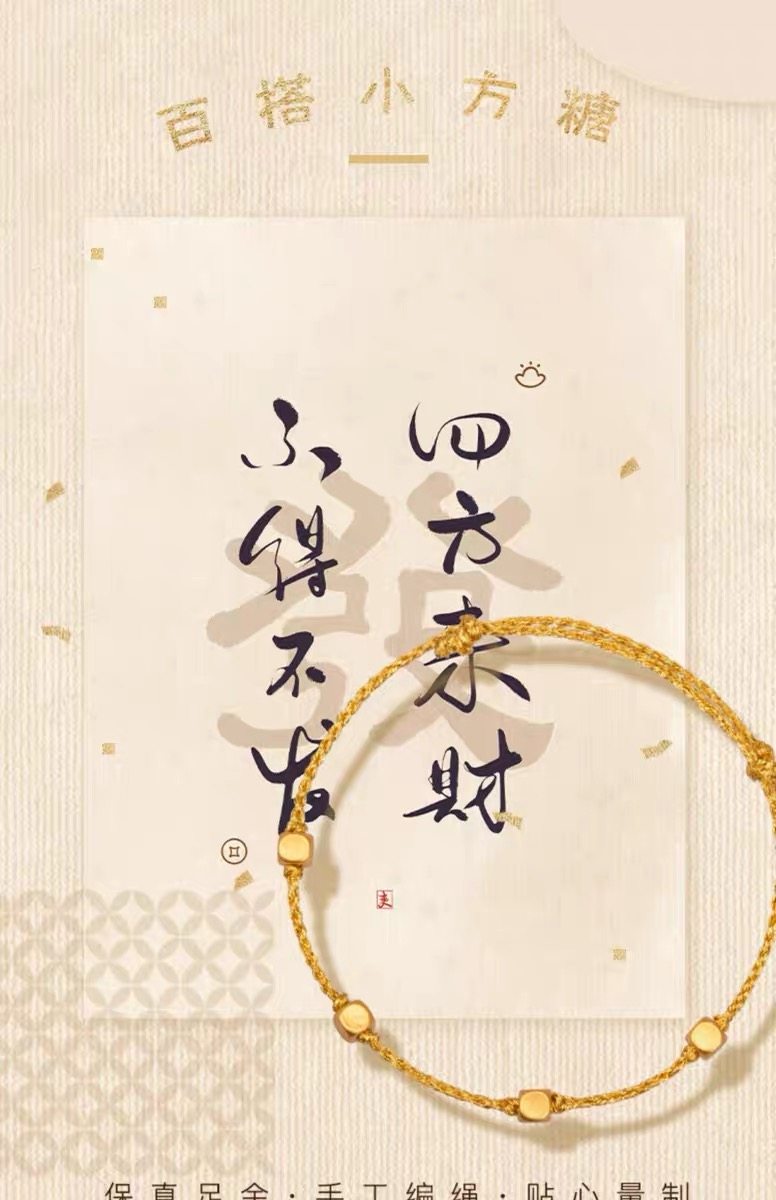 百搭小方糖
四方来财
不得不发
發
保真足金·手工编绳·贴心量制